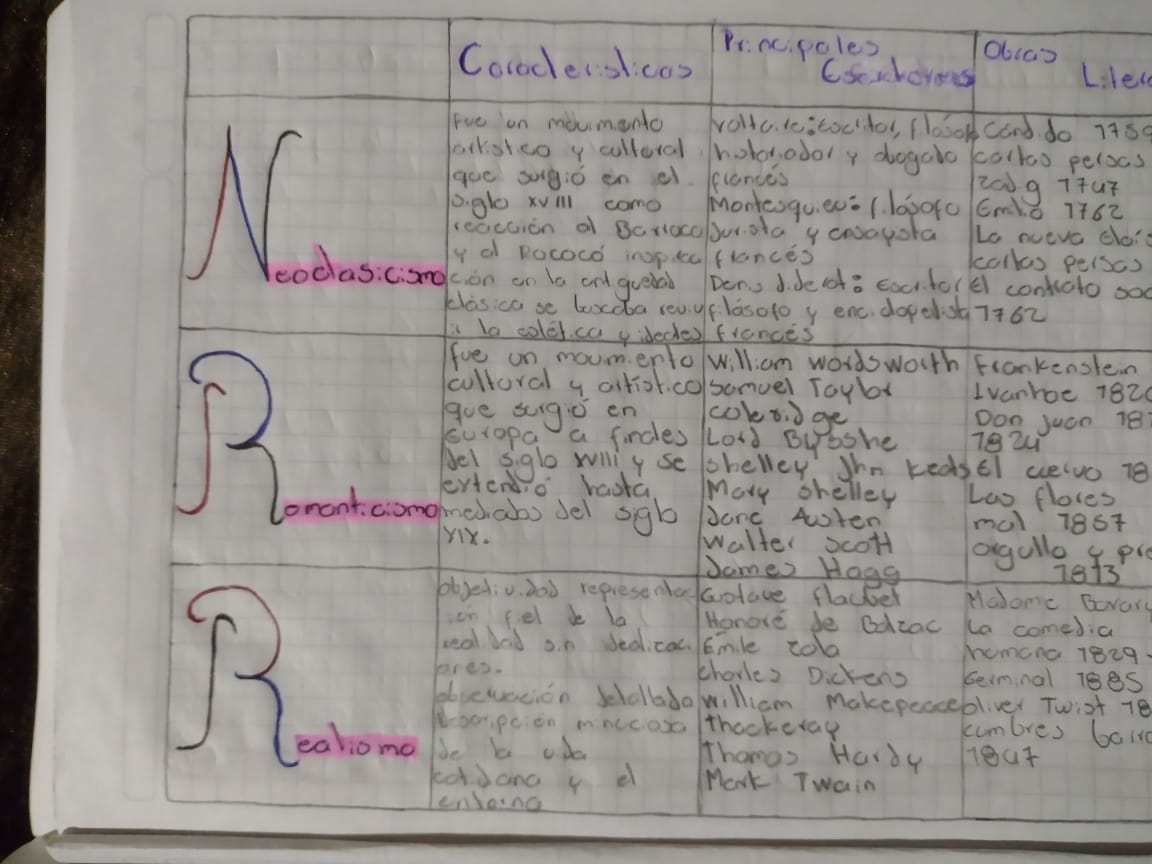 Características
Principales
Escritores
Obras
Liter
Neoclasicismo
Fue un movimiento
artístico y cultural
que surgió en el
siglo XVIII como
reacción al Barroco
y al Rococó inspira
ción en la antiguedad
clásica se buscaba reviv
ir la estética y ideales
Voltaire: escritor, filósof
historiador y abogado
francés
Montesquieu: filósofo
jurista y ensayista
francés
Denis diderot: escritor
filósofo y enciclopedista
francés
Candido 1759
cartas persas
zadig 1747
Emilio 1762
La nueva eloís
cartas persas
El contrato soc
1762
Romanticismo
fue un movimiento
cultural y artístico
que surgió en
Europa a finales
del siglo XVIII y se
extendió hasta
mediados del siglo
XIX.
William wordsworth
Samuel Taylor
coleridge
Lord Bysshe
shelley Jhn Keats
Mary shelley
Jane Austen
Walter Scott
James Hogg
Frankenstein
Ivanhoe 1820
Don juan 181
1824
El cuervo 18
Las flores
mal 1857
orgullo y pre
1813
Realismo
objetividad representac
ión fiel de la
realidad sin idealizac
ones.
observación detallada
descripción minuciosa
de la vida
cotidiana y el
entorno
Gustave flaubet
Honoré de Balzac
Émile zola
charles Dickens
William Makepeace
thackeray
Thomas Hardy
Mark Twain
Madame Bovary
La comedia
humana 1829-
Germinal 1885
oliver Twist 18
cumbres borr
1847